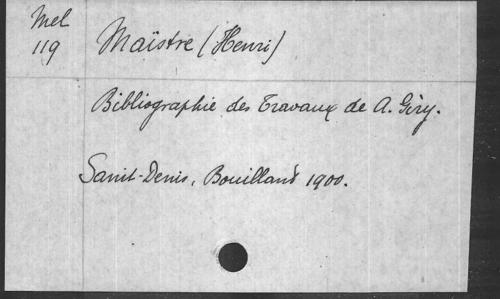 Mel
119
Maïstre (Henri)
Bibliographie des Travaux de A. Giry.
Sanit-Denis, Bouilland 1900.